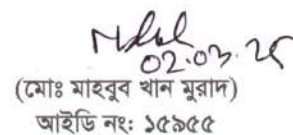 02.03.25
(মোঃ মাহবুব খান মুরাদ)
আইডি নং: ১৫৯৫৫